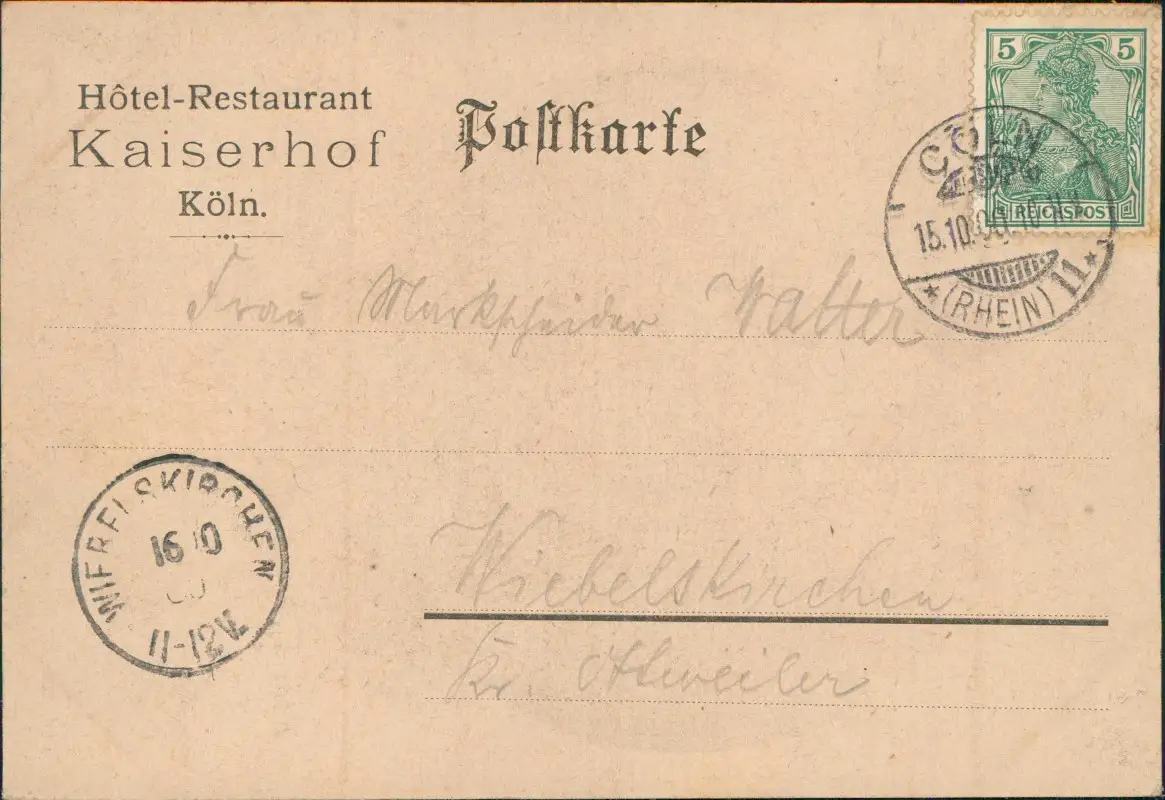 Hôtel-Restaurant
Kaiserhof
Köln.
Postkarte
5 5
REICHSPOST
CÖLN
15.10.00. 10-11
* (RHEIN) 11 *
Frau Markscheider Walter
WIEBELSKIRCHEN
16 10
00
11-12V.
Wiebelskirchen
Kr. Ottweiler